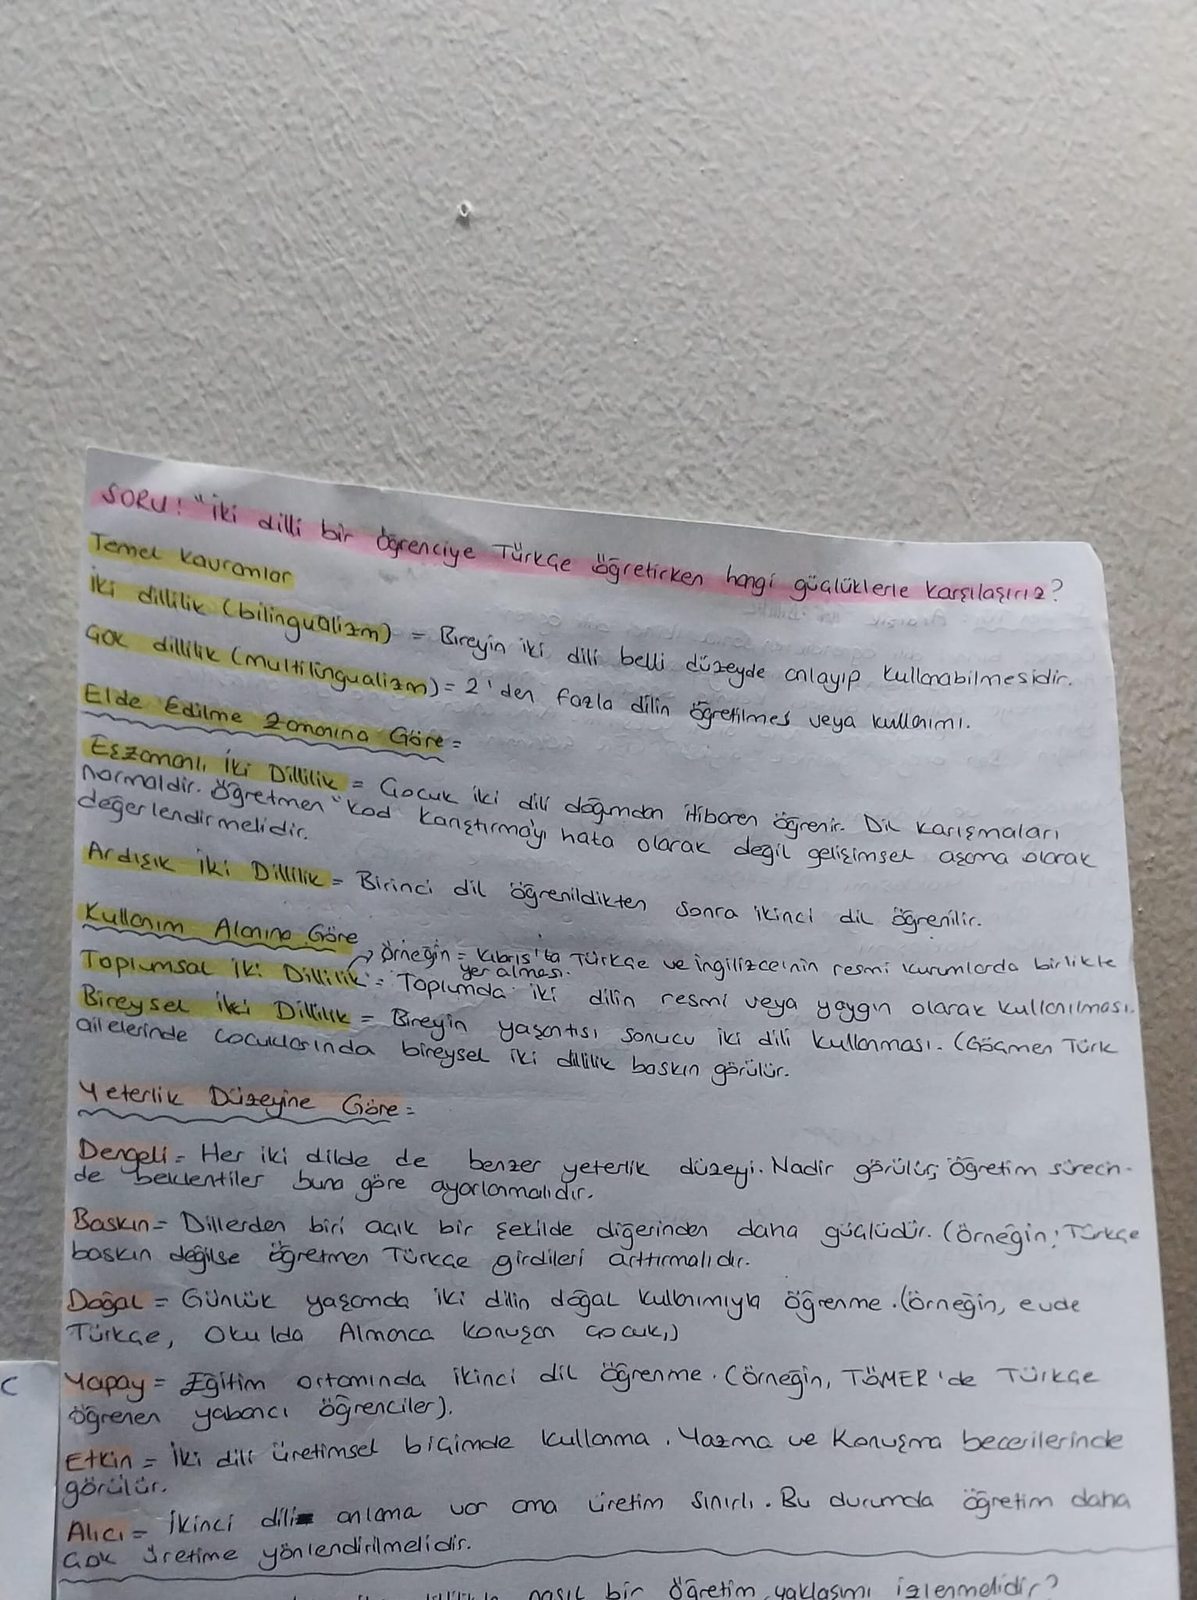 SORU: "İki dilli bir öğrenciye Türkçe öğretirken hangi güçlüklerle karşılaşırız?
Temel Kavramlar
İki dillilik (bilingualizm) = Bireyin iki dili belli düzeyde anlayıp kullanabilmesidir.
Çok dillilik (multilingualizm) = 2'den fazla dilin öğretilmes veya kullanımı.
Elde Edilme Zamanına Göre =
Eşzamanlı İki Dillilik = Çocuk iki dili doğumdan itibaren öğrenir. Dil karışmaları
normaldir. Öğretmen "kod karıştırma'yı hata olarak değil gelişimsel aşama olarak
değerlendirmelidir.
Ardışık İki Dillilik = Birinci dil öğrenildikten sonra ikinci dil öğrenilir.
Kullanım Alanına Göre
Örneğin = Kıbrıs'ta Türkçe ve ingilizce'nin resmi kurumlarda birlikte
yer alması.
Toplumsal İki Dillilik = Toplumda iki dilin resmi veya yaygın olarak kullanılması.
Bireysel İki Dillilik = Bireyin yaşantısı sonucu iki dili kullanması. (Göçmen Türk
ailelerinde çocuklarında bireysel iki dillilik baskın görülür.
Yeterlik Düzeyine Göre =
Dengeli = Her iki dilde de benzer yeterlik düzeyi. Nadir görülür; öğretim sürecin-
de beklentiler buna göre ayarlanmalıdır.
Baskın = Dillerden biri açık bir şekilde diğerinden daha güçlüdür. (Örneğin; Türkçe
baskın değilse öğretmen Türkçe girdileri arttırmalıdır.
Doğal = Günlük yaşamda iki dilin doğal kullanımıyla öğrenme. (örneğin, evde
Türkçe, okulda Almanca konuşan çocuk.)
Yapay = Eğitim ortamında ikinci dil öğrenme. (örneğin, TÖMER'de Türkçe
öğrenen yabancı öğrenciler).
Etkin = İki dili üretimsel biçimde kullanma. Yazma ve Konuşma becerilerinde
görülür.
Alıcı = İkinci dili anlama var ama üretim sınırlı. Bu durumda öğretim daha
çok üretime yönlendirilmelidir.
nasıl bir öğretim yaklaşımı izlenmelidir?
C